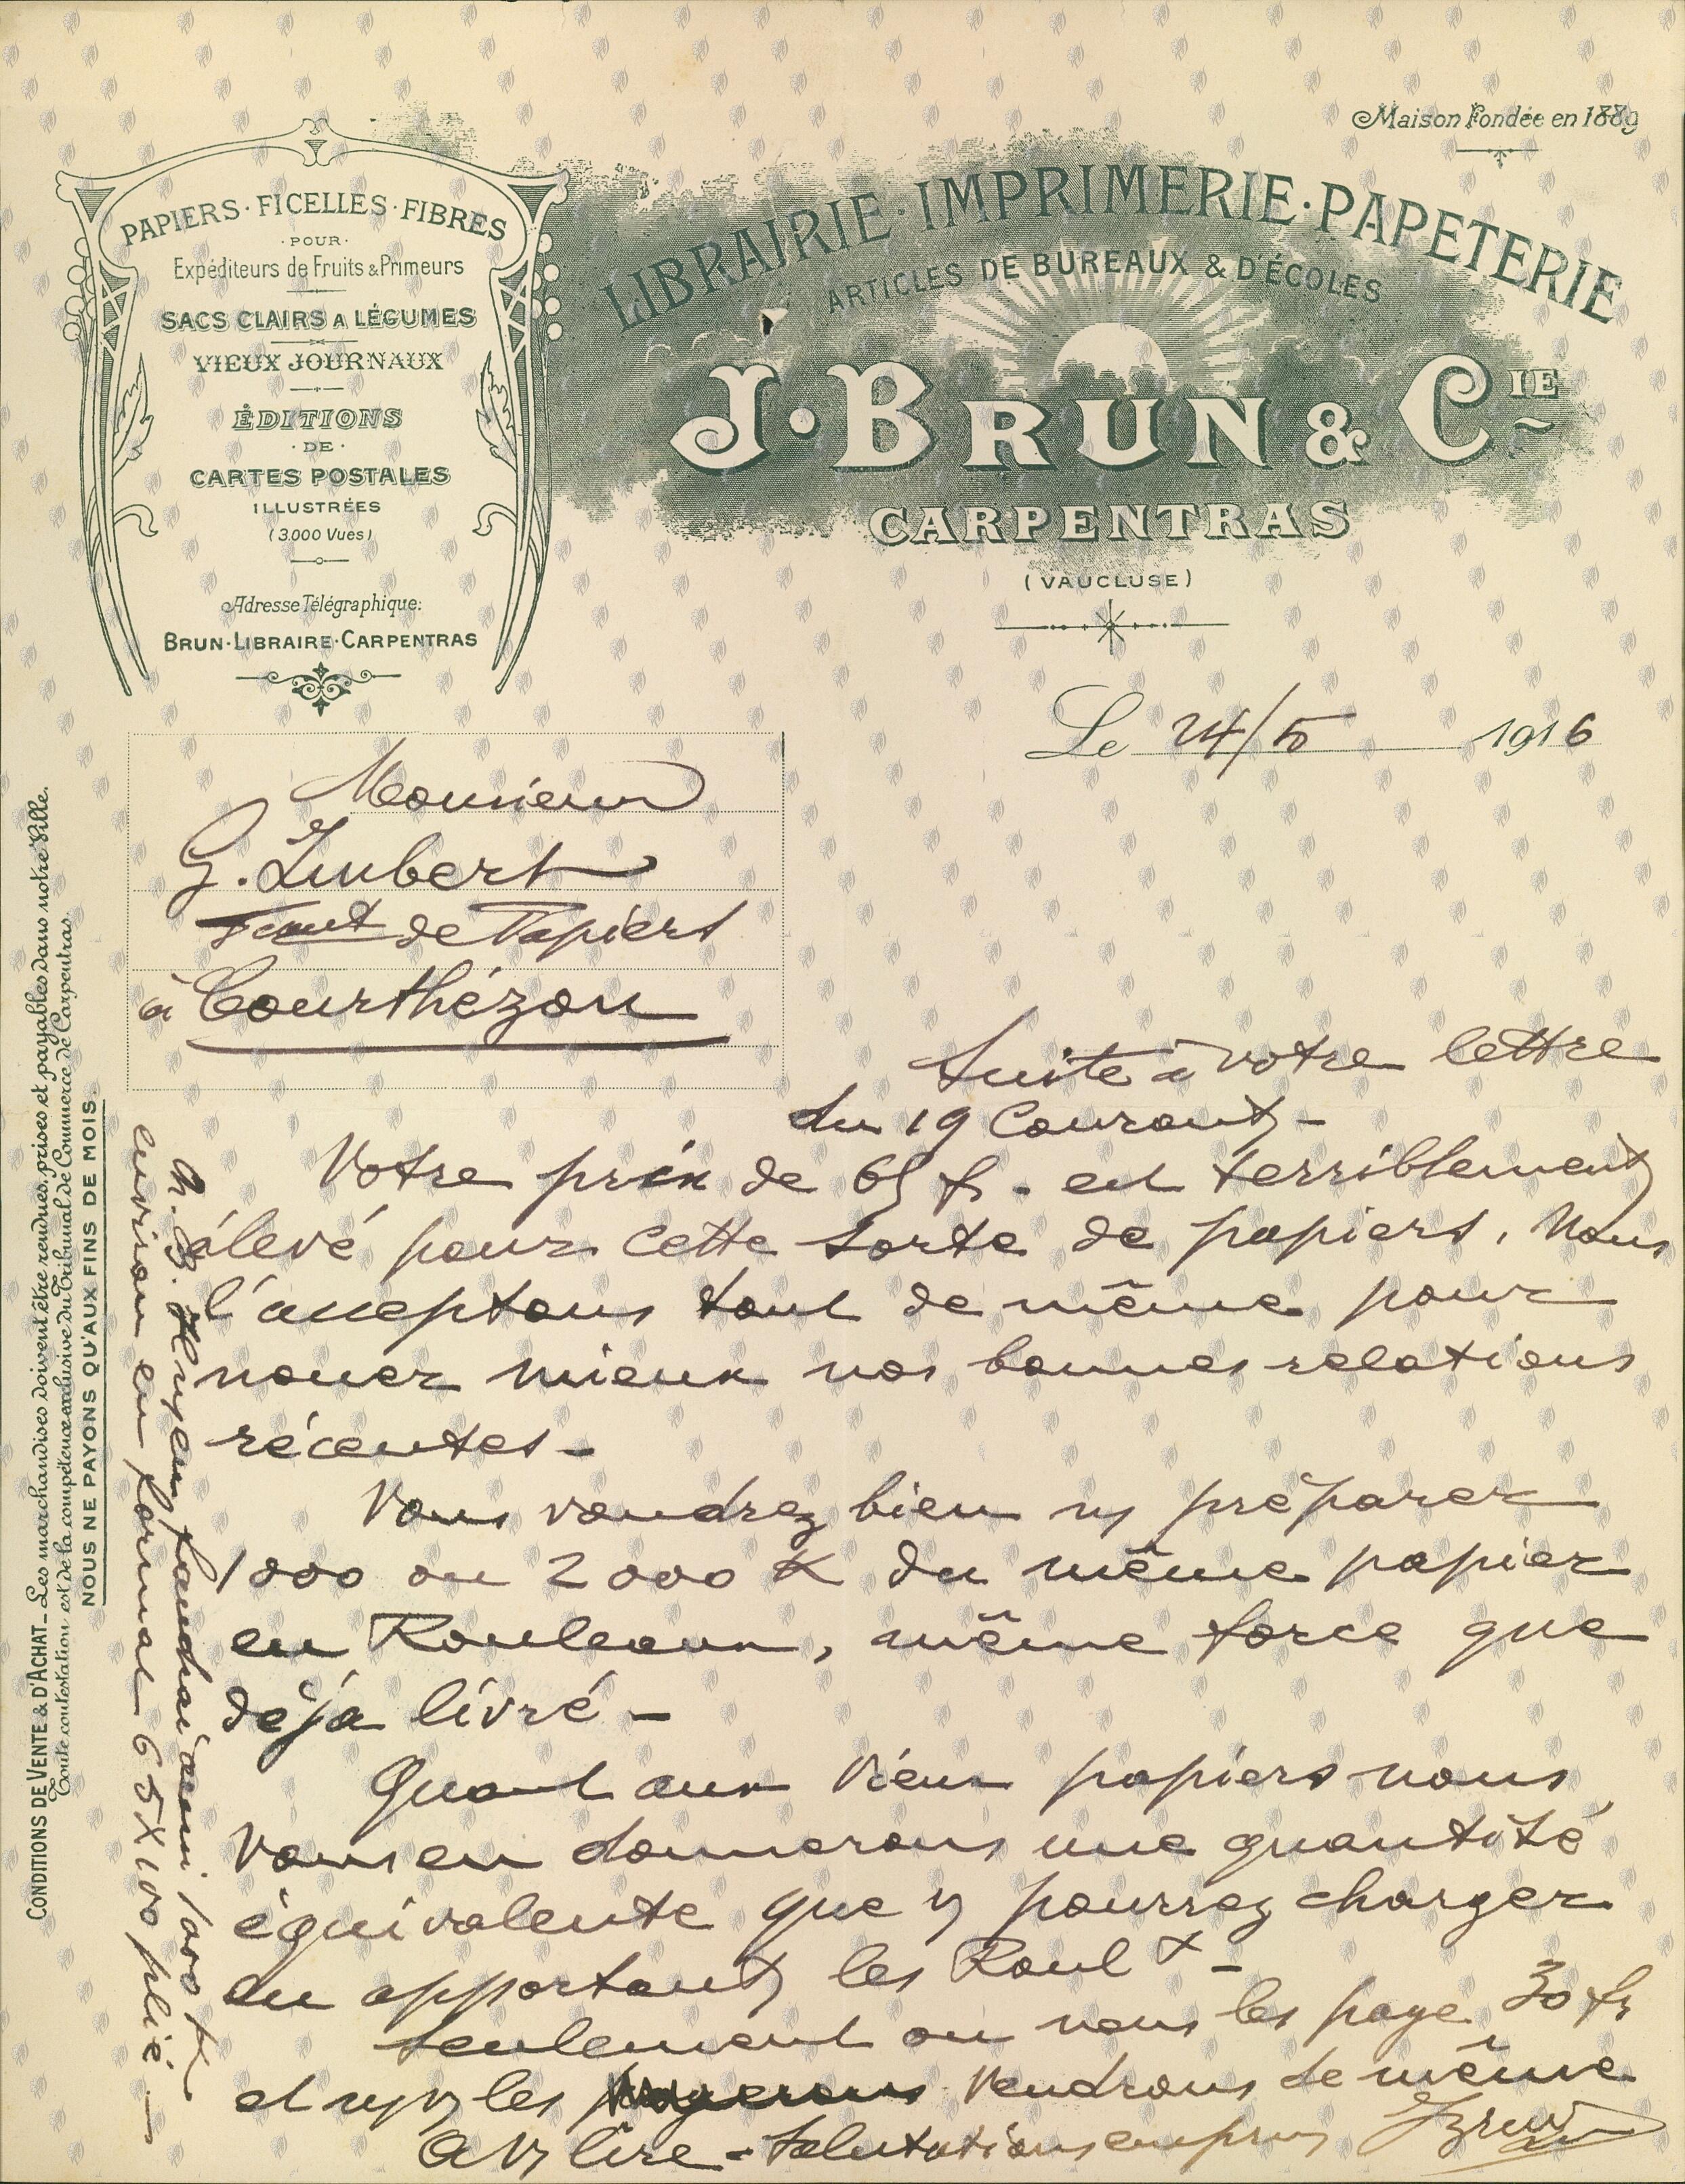 Maison Fondée en 1889
PAPIERS · FICELLES · FIBRES
· POUR ·
Expéditeurs de Fruits & Primeurs
SACS CLAIRS A LÉGUMES
VIEUX JOURNAUX
ÉDITIONS
· DE ·
CARTES POSTALES
ILLUSTRÉES
(3.000 Vues)
Adresse Télégraphique:
BRUN · LIBRAIRE · CARPENTRAS
LIBRAIRIE · IMPRIMERIE · PAPETERIE
ARTICLES DE BUREAUX & D'ÉCOLES
J. BRUN & CIE
CARPENTRAS
(VAUCLUSE)
Le 24/5 1916
Monsieur
G. Imbert
de Papiers
à Courthézon
Suite à votre lettre
du 19 Courant -
Votre prix de 65 f. est terriblement
élevé pour cette sorte de papiers. Nous
l'acceptons tout de même pour
nouer mieux nos bonnes relations
récentes -
Vous voudrez bien ns préparer
1000 ou 2000 K du même papier
en Rouleaux, même force que
déjà livré -
Quant aux Vieux papiers nous
vous en donnerons une quantité
équivalente que v pourrez charger
en apportant les Roulx -
Seulement on nous les paye 30 fr
et ns vs les vendrons de même
A vs lire - Salutations empres JBrun
N.B. Il m'en faudrait aussi 1000 K
environ en format 65 X 100 plié -
CONDITIONS DE VENTE & D'ACHAT _ Les marchandises doivent être rendues, prises et payables dans notre Ville.
Toute contestation est de la compétence exclusive du Tribunal de Commerce de Carpentras.
NOUS NE PAYONS QU'AUX FINS DE MOIS.